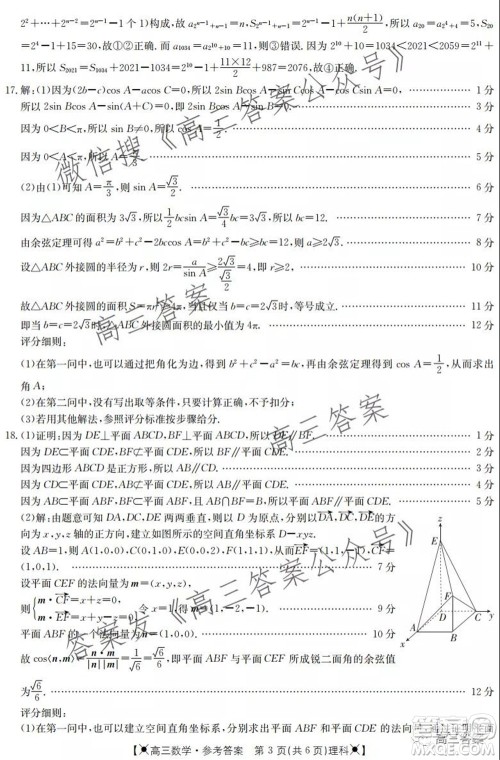 2²+…+2ⁿ⁻²=2ⁿ⁻¹-1个1)构成，故a₂ₙ₋₁₊ₙ₋₁=n，S₂ₙ₋₁₊ₙ₋₁=2ⁿ-1+n(n+1)/2，所以a₂₀=a₂⁴₊₄=5，S₂₀=
2⁴-1+15=30，故①②正确. 而a₁₀₃₄=a₂¹⁰₊₁₀=11，则③错误. 因为2¹⁰+10=1034<2021<2059=2¹¹+
11，所以S₂₀₂₁=S₁₀₃₄+2021-1034=2¹¹-1+11×12/2+987=2076，故④正确.
17.解：(1)因为(2b-c)cos A-acos C=0，所以2sin Bcos A-sin Ccos A-sin Acos C=0， 1分
所以2sin Bcos A-sin(A+C)=0，所以2sin Bcos A-sin B=0. 3分
因为0<B<π，所以sin B≠0，所以cos A=1/2. 4分
因为0<A<π，所以A=π/3. 5分
(2)由(1)可知A=π/3，则sin A=√3/2. 6分
因为△ABC的面积为3√3，所以1/2 bcsin A=√3/4 bc=3√3，所以bc=12. 7分
由余弦定理可得a²=b²+c²-2bccos A=b²+c²-bc≥bc=12，则a≥2√3. 8分
设△ABC外接圆的半径为r，则2r=a/sin A≥2√3/(√3/2)=4，即r≥2. 10分
故△ABC外接圆的面积S=πr²≥4π，当且仅当b=c=2√3时，等号成立. 11分
即当b=c=2√3时，△ABC外接圆的面积的最小值为4π. 12分
评分细则：
(1)在第一问中，也可以通过把角化为边，得到b²+c²-a²=bc，再由余弦定理得到cos A=1/2，从而求出
角A；
(2)在第二问中，没有写出取等条件，只要计算正确，不予扣分；
(3)若用其他解法，参照评分标准按步骤给分.
18.(1)证明：因为DE⊥平面ABCD，BF⊥平面ABCD，所以DE∥BF. 1分
因为DE⊂平面CDE，BF⊄平面CDE，所以BF∥平面CDE. 2分
因为四边形ABCD为正方形，所以AB∥CD. 3分
因为CD⊂平面CDE，AB⊄平面CDE，所以AB∥平面CDE. 4分
因为AB⊂平面ABF，BF⊂平面ABF，且AB∩BF=B，所以平面ABF∥平面CDE. 5分
(2)解：由题意可知DA，DC，DE两两垂直，则以D为原点，分别以DA，DC，DE的方
向为x，y，z轴的正方向，建立如图所示的空间直角坐标系D—xyz.
设AB=1，则A(1,0,0)，C(0,1,0)
设平面CEF的法向量为m=(x,y,z)，
则{m·CF=x+z=0，m·EF=x+y-z=0，令x=1，得 9分
平面CDE的一个法向量为n=(1,0,0). 10分
故cos⟨n,m⟩=n·m/|n||m|=1/√6=√6/6，即平面CEF与平面CDE所成锐二面角的余弦值
为√6/6. 12分
z
E
F
D
C
y
A
B
x
评分细则：
(1)在第一问中，也可以建立空间直角坐标系，求出平面ABF和平面CDE的法向量
【高三数学·参考答案 第3页(共6页)理科】
微信搜《高三答案公众号》
《高三答案》
答案发《高三答案公众号》